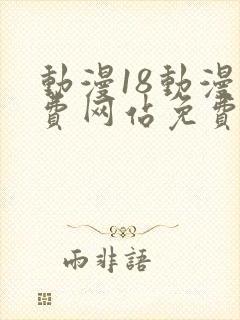 動漫18動漫
費网佔免費
雨非語